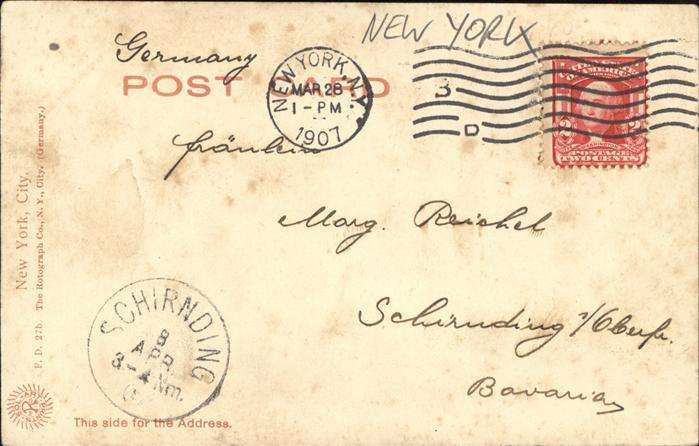 NEW YORK
Germany
POST CARD
NEW YORK, N.Y.
MAR 28
1-PM
1907
B
D
fräulein
POSTAGE
TWO CENTS
Marg. Reichel
Schirnding i/Oberfr.
Bavaria
SCHIRNDING
8
APR.
3-4 Nm.
New York, City.
P. D. 27b The Rotograph Co., N. Y., City. (Germany.)
This side for the Address.